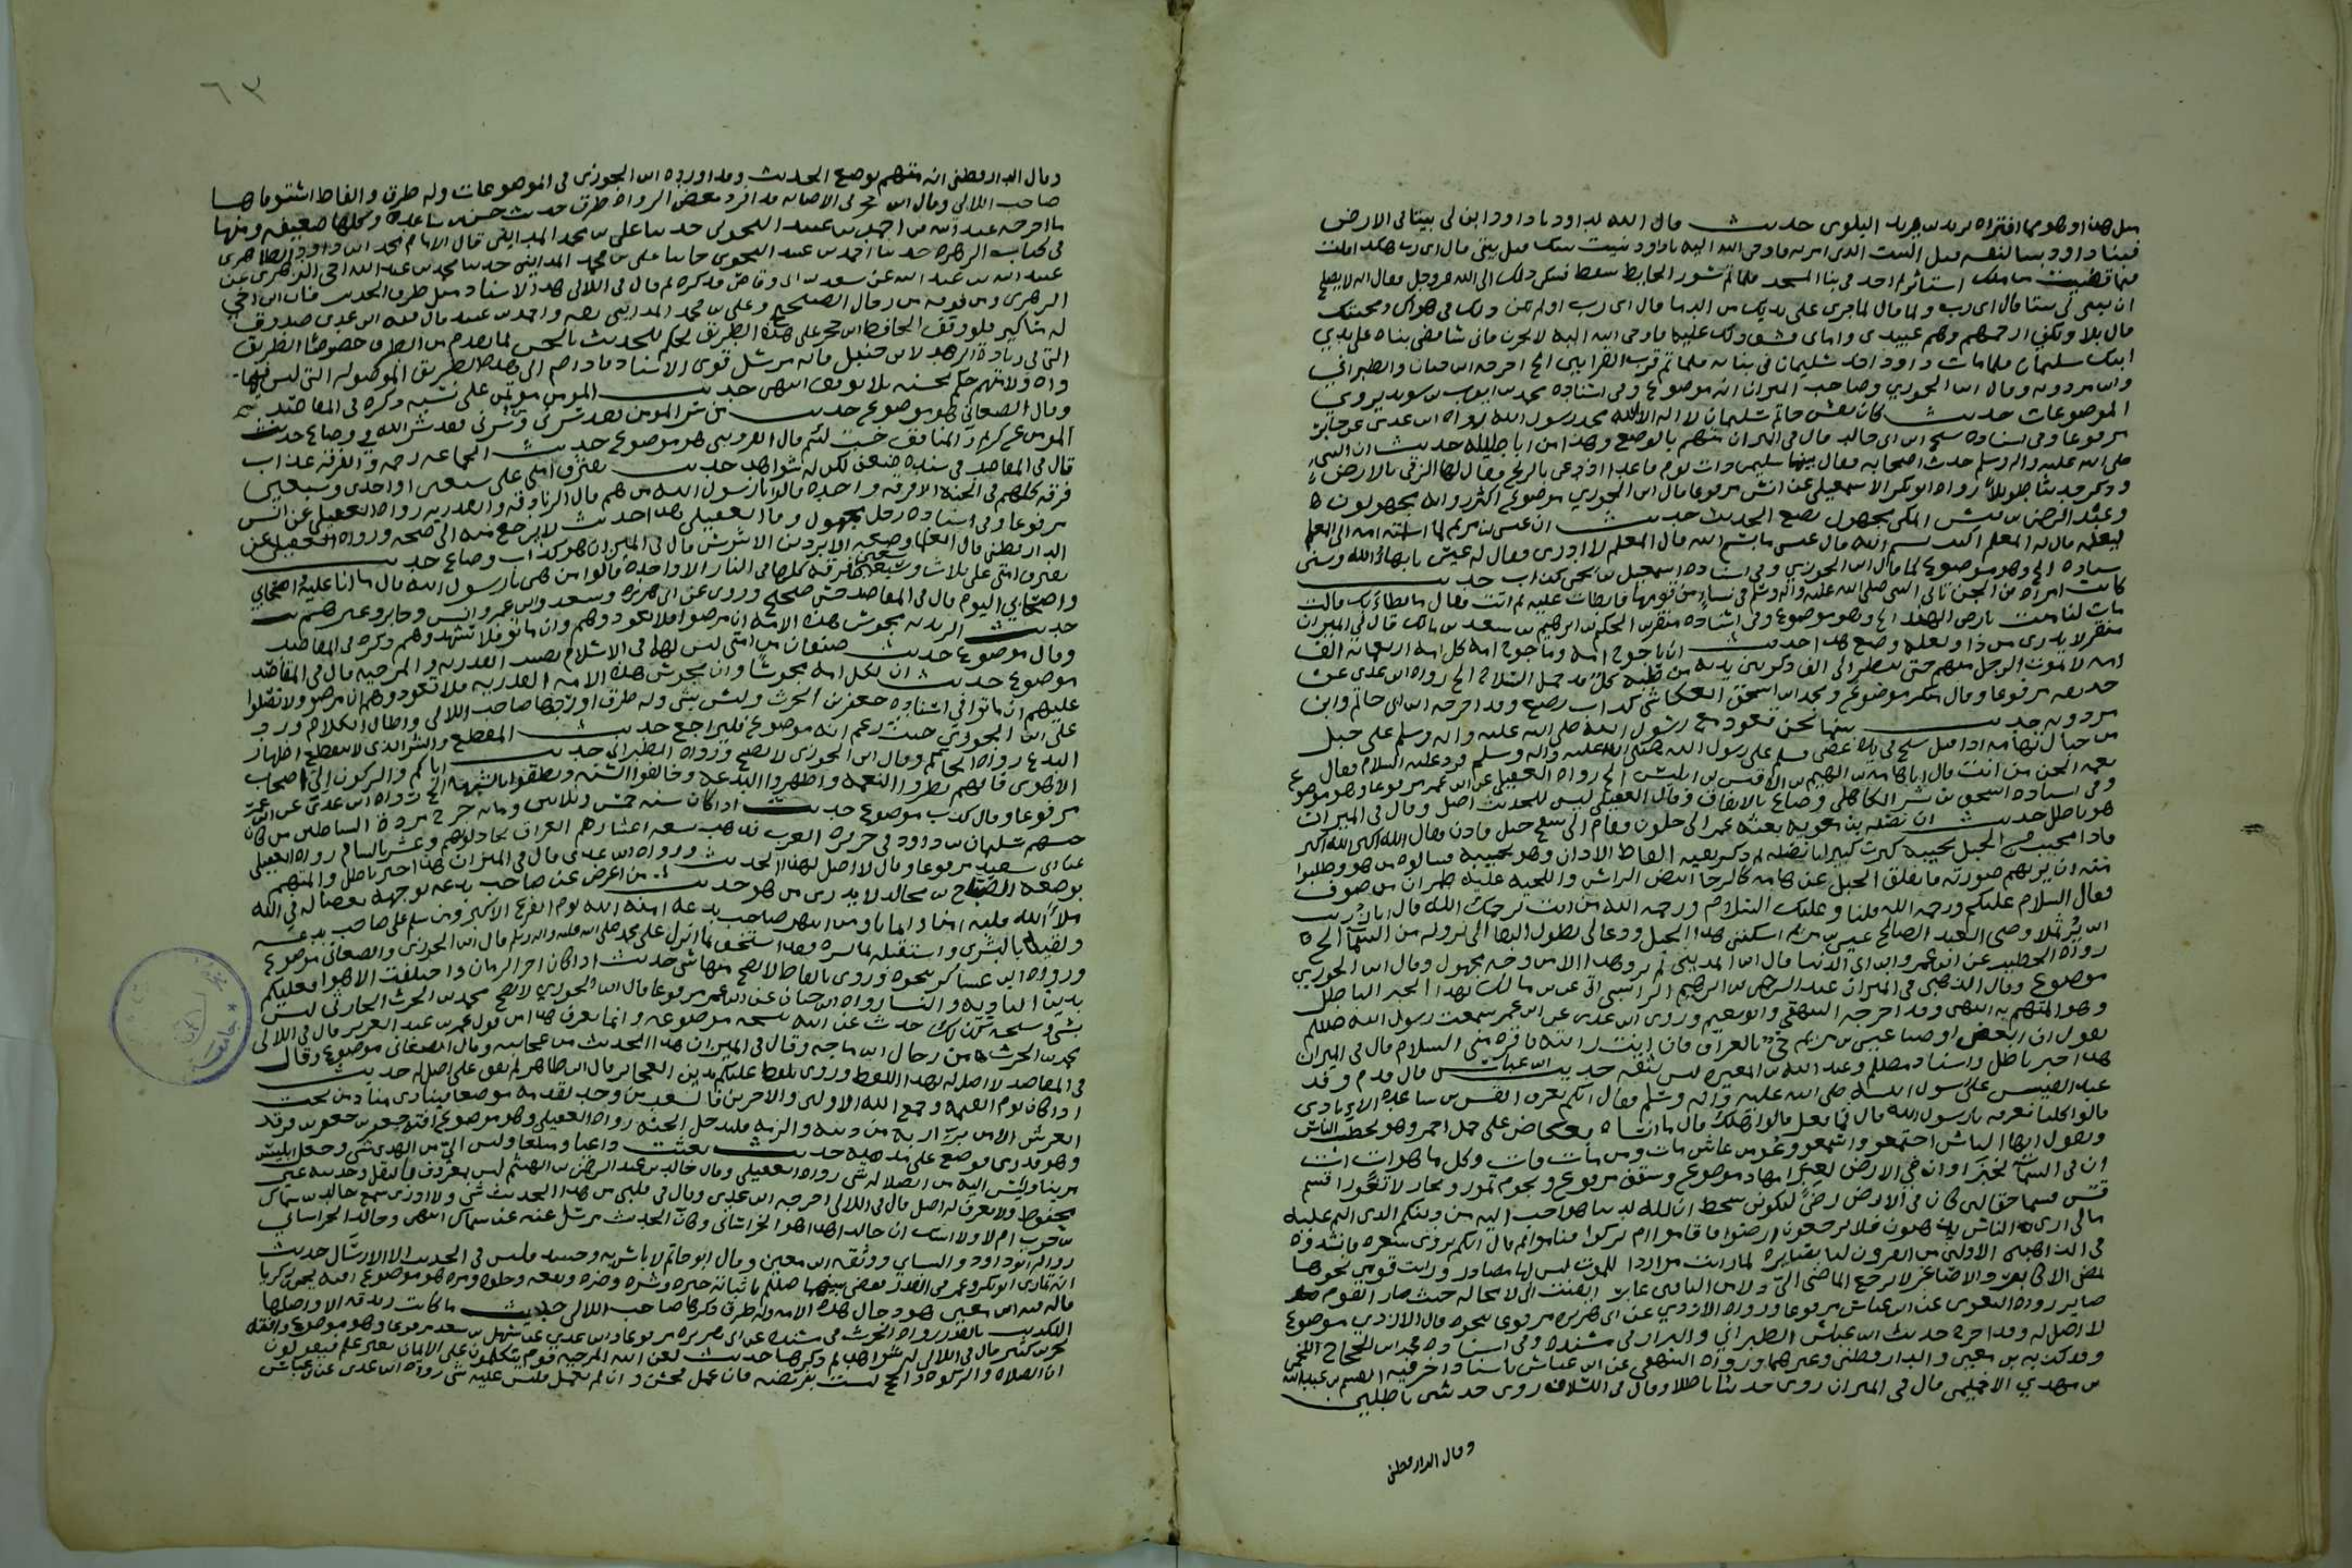 مثل هذا وهو مما افتراه يزيد بن يزيد البلوى حديث قال الله لداود يا داود ابن لى بيتا فى الارض
فبنا داود بيتا لنفسه قبل البيت الذى امر به فاوحى الله اليه يا داود نبيت بيتك قبل بيتى قال اى رب هكذا قلت
فيما قضيت من ملك استاثر ثم اخذ فى بنا المسجد فلما تم سور الحايط سقط فشكى ذلك الى الله عز وجل فقال انه لا يصلح
ان تبنى لى بيتا قال اى رب ولم قال لما جرى على يديك من الدما قال اى رب اولم يكن ذلك فى هواك ومحبتك
قال بلا ولكنهم عبيدى وانا ارحمهم فشق ذلك عليه فاوحى الله اليه لا تحزن فانى سأقضى بناه على يدي
ابنك سليمان فلما مات داود اخذ سليمان فى بنائه فلما تم قرب القرابين الخ اخرجه ابن حبان والطبراني
وابن مردويه وقال ابن الجوزي وصاحب الميزان انه موضوع وفى اسناده محمد بن ايوب بن سويد يروي
الموضوعات حديث كان نقش خاتم سليمان لا اله الا الله محمد رسول الله رواه ابن عدى عن جابر
مرفوعا وفى اسناده شيخ ابن ابى خالد قال فى الميزان متهم بالوضع وهذا من اباطيله حديث ان النبى
صلى الله عليه واله وسلم حدث اصحابه فقال بينما سليمن ذات يوم قاعدا اذ دعى بالريح فقال لها الزقى بالارض
وذكر حديثا طويلا رواه ابو بكر الاسمعيلي عن انس مرفوعا قال ابن الجوزي موضوع اكثر رواته مجهولون
وعبد الرحمن بن المكى مجهول يضع الحديث حديث ان عيسى بن مريم لما اسلمته امه الى المعلم
ليعلمه قال له المعلم اكتب بسم الله قال عيسى ما بسم الله قال المعلم لا ادرى فقال له عيسى با بهاؤ الله وسين
سناؤه الخ وهو موضوع كما قال ابن الجوزي وفى اسناده اسمعيل بن يحيى كذاب حديث
كانت امراة من الجن تأتى النبى صلى الله عليه واله وسلم فى نساء من قومها فابطات عليه ثم اتت فقال ما ابطأ بك قالت
مات لنا ميت بارض الهند الخ وهو موضوع وفى اسناده منقر بن الحكم بن ابرهيم بن سعد بن مالك قال فى الميزان
منقر لا يدرى من ذا ولعله وضع هذا حديث ان ياجوج امه وماجوج امه كل امه اربعمائة الف
امه لا يموت الرجل منهم حتى ينظر الى الف ذكر بين يديه من صلبه كل قد حمل السلاح الخ رواه ابن عدى عن
حذيفه مرفوعا وقال منكر موضوع ومحمد بن اسحق العكاشى كذاب يضع وقد اخرجه ابن ابى حاتم وابن
مردويه حديث بينما نحن قعود مع رسول الله صلى الله عليه واله وسلم على جبل
من جبال تهامه اذ اقبل شيخ فى يده عصى فسلم على رسول الله صلى الله عليه واله وسلم فرد عليه السلام فقال
نغمة الجن من انت قال انا هامة بن الهيم بن الاقيس بن ابليس الخ رواه العقيلى عن ابن عمر مرفوعا وهو موضوع
وفى اسناده اسحق بن بشر الكاهلى وضاع بالاتفاق وقال العقيلى ليس للحديث اصل وقال فى الميزان
هو باطل حديث ان نضله بن معويه بعثه عمر الى حلوان وقام الى سفح جبل فاذن فقال الله اكبر الله اكبر
فاذا مجيب من الجبل يجيبه كبرت كبيرا يا نضله ثم ذكر بقيه الفاظ الاذان وهو يجيبه فسالوه من هو وطلبوا
منه ان يريهم صورته فانفلق الجبل عن هامه كالرحا ابيض الراس واللحيه عليه طمران من صوف
فقال السلام عليكم ورحمه الله قلنا وعليك السلام ورحمه الله من انت يرحمك الله قال انا زريب
ابن برثملا وصى العبد الصالح عيسى بن مريم اسكننى هذا الجبل ودعا لى بطول البقا الى نزوله من السما الخ
رواه الخطيب عن ابن عمر وابن ابى الدنيا قال ابن المدينى لم يرو هذا الا من وجه مجهول وقال ابن الجوزي
موضوع وقال الذهبى فى الميزان عبد الرحمن بن ابرهيم الراسبى اتى عن مالك بهذا الخبر الباطل
وهو المتهم به انتهى وقد اخرجه البيهقى وابو نعيم وروى ابن عدى عن ابن عمر سمعت رسول الله صلعم
يقول ان بعض اوصيا عيسى بن مريم حى بالعراق فان انت رايته فاقره منى السلام قال فى الميزان
هذا خبر باطل واسناد مظلم وعبد الله بن المغيره ليس بثقه حديث ابن عباس قال قدم وفد
عبد القيس على رسول الله صلى الله عليه واله وسلم فقال ايكم يعرف القس بن ساعدة الايادي
قالوا كلنا نعرفه يا رسول الله قال فما فعل قالوا هلك قال ما انساه بعكاظ على جمل احمر وهو يخطب الناس
ويقول ايها الناس اجتمعو واسمعو وعو من عاش مات ومن مات فات وكل ما هوات ات
ان فى السماء لخبرا وان فى الارض لعبرا مهاد موضوع وسقف مرفوع ونجوم تمور وبحار لا تغور اقسم
قس قسما حقا لئن كان فى الارض رضى ليكونن سخط ان لله لدينا هو احب اليه من دينكم الذى انتم عليه
مالى ارى الناس يذهبون فلا يرجعون ارضوا فاقاموا ام تركوا فناموا ثم قال ايكم يروى شعره فانشدوه
فى الذاهبين الاولين من القرون لنا بصاير لما رايت مواردا للموت ليس لها مصادر ورايت قومي نحوها
تمضى الاكابر والاصاغر لا يرجع الماضى الى ولا من الباقين غابر ايقنت انى لا محاله حيث صار القوم
صاير رواه البغوى عن ابن عباس مرفوعا ورواه الازدى عن ابى هريره مرفوعا بنحوه قال الازدي موضوع
لا اصل له وقد اخرج حديث ابن عباس الطبراني والبزار فى مسنده وفى اسناده محمد بن الحجاج اللخمى
وقد كذبه بن معين والدارقطنى وغيرهما ورواه البيهقى عن ابن عباس باسناد اخر فيه القسم بن عبد الله
بن مهدي الاخميمى قال فى الميزان روى حديثا باطلا وقال فى اللسان روى حديثين باطلين
وقال الدارقطنى
٦٣
وقال الدارقطنى انه متهم بوضع الحديث وقد اورده ابن الجوزى فى الموضوعات وله طرق والفاظ استوفاها
صاحب اللالي وقال ابن حجر فى الاصابه قد افرد بعض الرواة طرق حديث قس بن ساعدة وكلها ضعيفه ومنها
ما اخرجه عبد الله بن احمد بن عبيد النحوى حدثنا على بن محمد المدايني قال الامام محمد بن داود الظاهرى
فى كتاب الزهره حدثنا احمد بن عبيد النحوى حدثنا على بن محمد المداينى حدثنا محمد بن عبد الله اخى الزهرى عن
عبيد الله بن عبد الله عن سعد بن ابى وقاص فذكره ثم قال فى اللالى هذا الاسناد امثل طرق الحديث فان ابن اخي
الزهرى ومن فوقه من رجال الصحيح وعلى بن محمد المداينى ثقه واحمد بن عبيد قال فيه ابن عدى صدوق
له مناكير فلو وقف الحافظ ابن حجر على هذه الطريق لحكم للحديث بالحسن لما تقدم من الطرق خصوصا الطريق
التى فى زيادة الزهد لابن حنبل فانه مرسل قوى الاسناد فاذا ضم الى هذه الطريق الموصوله التى ليس فيها
واه ولا متهم حكم بحسنه بلا توقف انتهى حديث المومن موتمن على نسبه ذكره فى المقاصد
وقال الصغاني هو موضوع حديث من سر المومن فقد سرنى ومن سرنى فقد سر الله فى وضاع حديث
المومن غر كريم والمنافق خب لئيم قال القزوينى هو موضوع حديث الجماعه رحمه والفرقه عذاب
قال فى المقاصد فى سنده ضعف لكن له شواهد حديث تفترق امتى على سبعين او احدى وسبعين
فرقه كلهم فى الجنه الا فرقه واحده قالوا يا رسول الله من هم قال الزنادقه والقدريه رواه العقيلى عن انس
مرفوعا وفى اسناده رجل مجهول وقال العقيلى هذا حديث لا يرجع منه الى صحه ورواه العقيلى عن
الدارقطنى قال العلماء وضعه الابرد بن الاشرس قال فى الميزان هو كذاب وضاع حديث
تفترق امتى على ثلاث وسبعين فرقه كلها فى النار الا واحدة قالوا من هى يا رسول الله قال ما انا عليه اليوم
واصحابي اليوم قال فى المقاصد حسن صحيح وروى عن ابى هريره وسعد وابن عمر وانس وجابر وغيرهم
حديث القدريه مجوس هذه الامه ان مرضوا فلا تعودوهم وان ماتوا فلا تشهدوهم ذكره فى المقاصد
وقال موضوع حديث صنفان من امتى ليس لهما فى الاسلام نصيب القدريه والمرجيه قال فى المقاصد
موضوع حديث ان لكل امه مجوسا وان مجوس هذه الامه القدريه فلا تعودوهم ان مرضو ولا تصلوا
عليهم ان ماتوا فى اسناده جعفر بن الحرث وليس بشى وله طرق اوردها صاحب اللالى واطال الكلام ورد
على ابن الجوزي حيث زعم انه موضوع فليراجع حديث المفظع والشر الذى لا ينقطع اظهار
البدع رواه الحاكم وقال ابن الجوزى لا يصح ورواه الطبرانى حديث اياكم والركون الى اصحاب
الاهوى فانهم بطروا النعمه واظهروا البدعه وخالفوا السنه ونطقوا بالشبهه الخ رواه ابن عدى عن ابن عمر
مرفوعا وقال كذب موضوع حديث اذا كان سنه خمس وثلاثين ومايه خرج مردة الشياطين من كان
حبسهم سليمان بن داود فى جزيرة العرب فذهب تسعه اعشارهم العراق يجادلونهم وعشر بالشام رواه العقيلي
عن ابى سعيد مرفوعا وقال لا اصل لهذا الحديث ورواه ابن عدى قال فى الميزان هذا خبر باطل والمتهم
بوضعه الصباح بن مجالد لا يدرى من هو حديث من اعرض عن صاحب بدعه بوجهه بغضا له فى الله
ملأ الله قلبه امنا وايمانا ومن انتهر صاحب بدعه امنه الله يوم الفزع الاكبر ومن سلم على صاحب بدعه
ولقيه بالبشرى واستقبله بما يسره فقد استخف بما انزل على محمد صلى الله عليه واله وسلم قال ابن الجوزى والصغانى موضوع
ورواه ابن عساكر بنحوه وروى بالفاظ لا يصح منها شى حديث اذا كان اخر الزمان واختلفت الاهوا فعليكم
بدين الباديه والنسا رواه ابن حبان عن ابن عمر مرفوعا قال ابن الجوزي لا يصح محمد بن الحرث الحارثى ليس
بشى وشيخه كذلك حدث عن ابيه بنسخه موضوعه وانما يعرف هذا من قول عمر بن عبد العزيز قال فى اللالى
محمد بن الحرث من رجال ابن ماجه وقال فى الميزان هذا الحديث من عجايبه وقال الصغانى موضوع وقال
فى المقاصد لا اصل له بهذا اللفظ وروى بلفظ عليكم بدين العجايز قال ابن طاهر لم نقف على اصل له حديث
اذا كان يوم القيمه وجمع الله الاولين والاخرين فالسعيد من وجد لقدمه موضعا فينادى مناد من تحت
العرش الا من برا ربه من ذنبه والزمه نفسه فليدخل الجنه رواه العقيلى وهو موضوع افته جعفر بن جسر بن فرقد
وهو قدرى فوضع على مذهبه حديث بعثت داعيا ومبلغا وليس الى من الهدى شى وجعل ابليس
مزينا وليس اليه من الضلاله شى رواه العقيلى وقال خالد بن عبد الرحمن بن الهيثم ليس بمعروف بالنقل وحديثه غير
محفوظ ولا يعرف له اصل قال فى اللالى اخرجه ابن عدي وقال فى قلبى من هذا الحديث شى ولا ادرى سمع خالد بن سماك
بن حرب ام لا ولا اشك ان خالدا هذا هو الخراسانى وكان الحديث مرسل عنه عن سماك انتهى وخالد الخراسانى
روى له ابو داود والنساى ووثقه ابن معين وقال ابو حاتم لا باس به وحينئذ فليس فى الحديث الا الارسال حديث
ان تمارى ابو بكر وعمر فى القدر فقضى بينهما صلعم باثباته خيره وشره وضره ونفعه وحلوه ومره هو موضوع افته يحيى بن زكريا
قال فيه ابن معين هو دجال هذه الامه وله طرق ذكرها صاحب اللالى حديث ما كانت زندقه الا واصلها
التكذيب بالقدر رواه الحرث فى مسنده عن ابى هريره مرفوعا وابن عدي عن سهل بن سعد مرفوعا وهو موضوع وافته
بحر بن كنيز قال فى اللالى له شواهد ثم ذكرها حديث لعن الله المرجيه قوم يتكلمون على الايمان بغير علم فيقولون
ان الصلاة والزكوه والحج ليست بفريضه فان عمل فحسن وان لم يعمل فليس عليه شى رواه ابن عدى عن ابن عباس